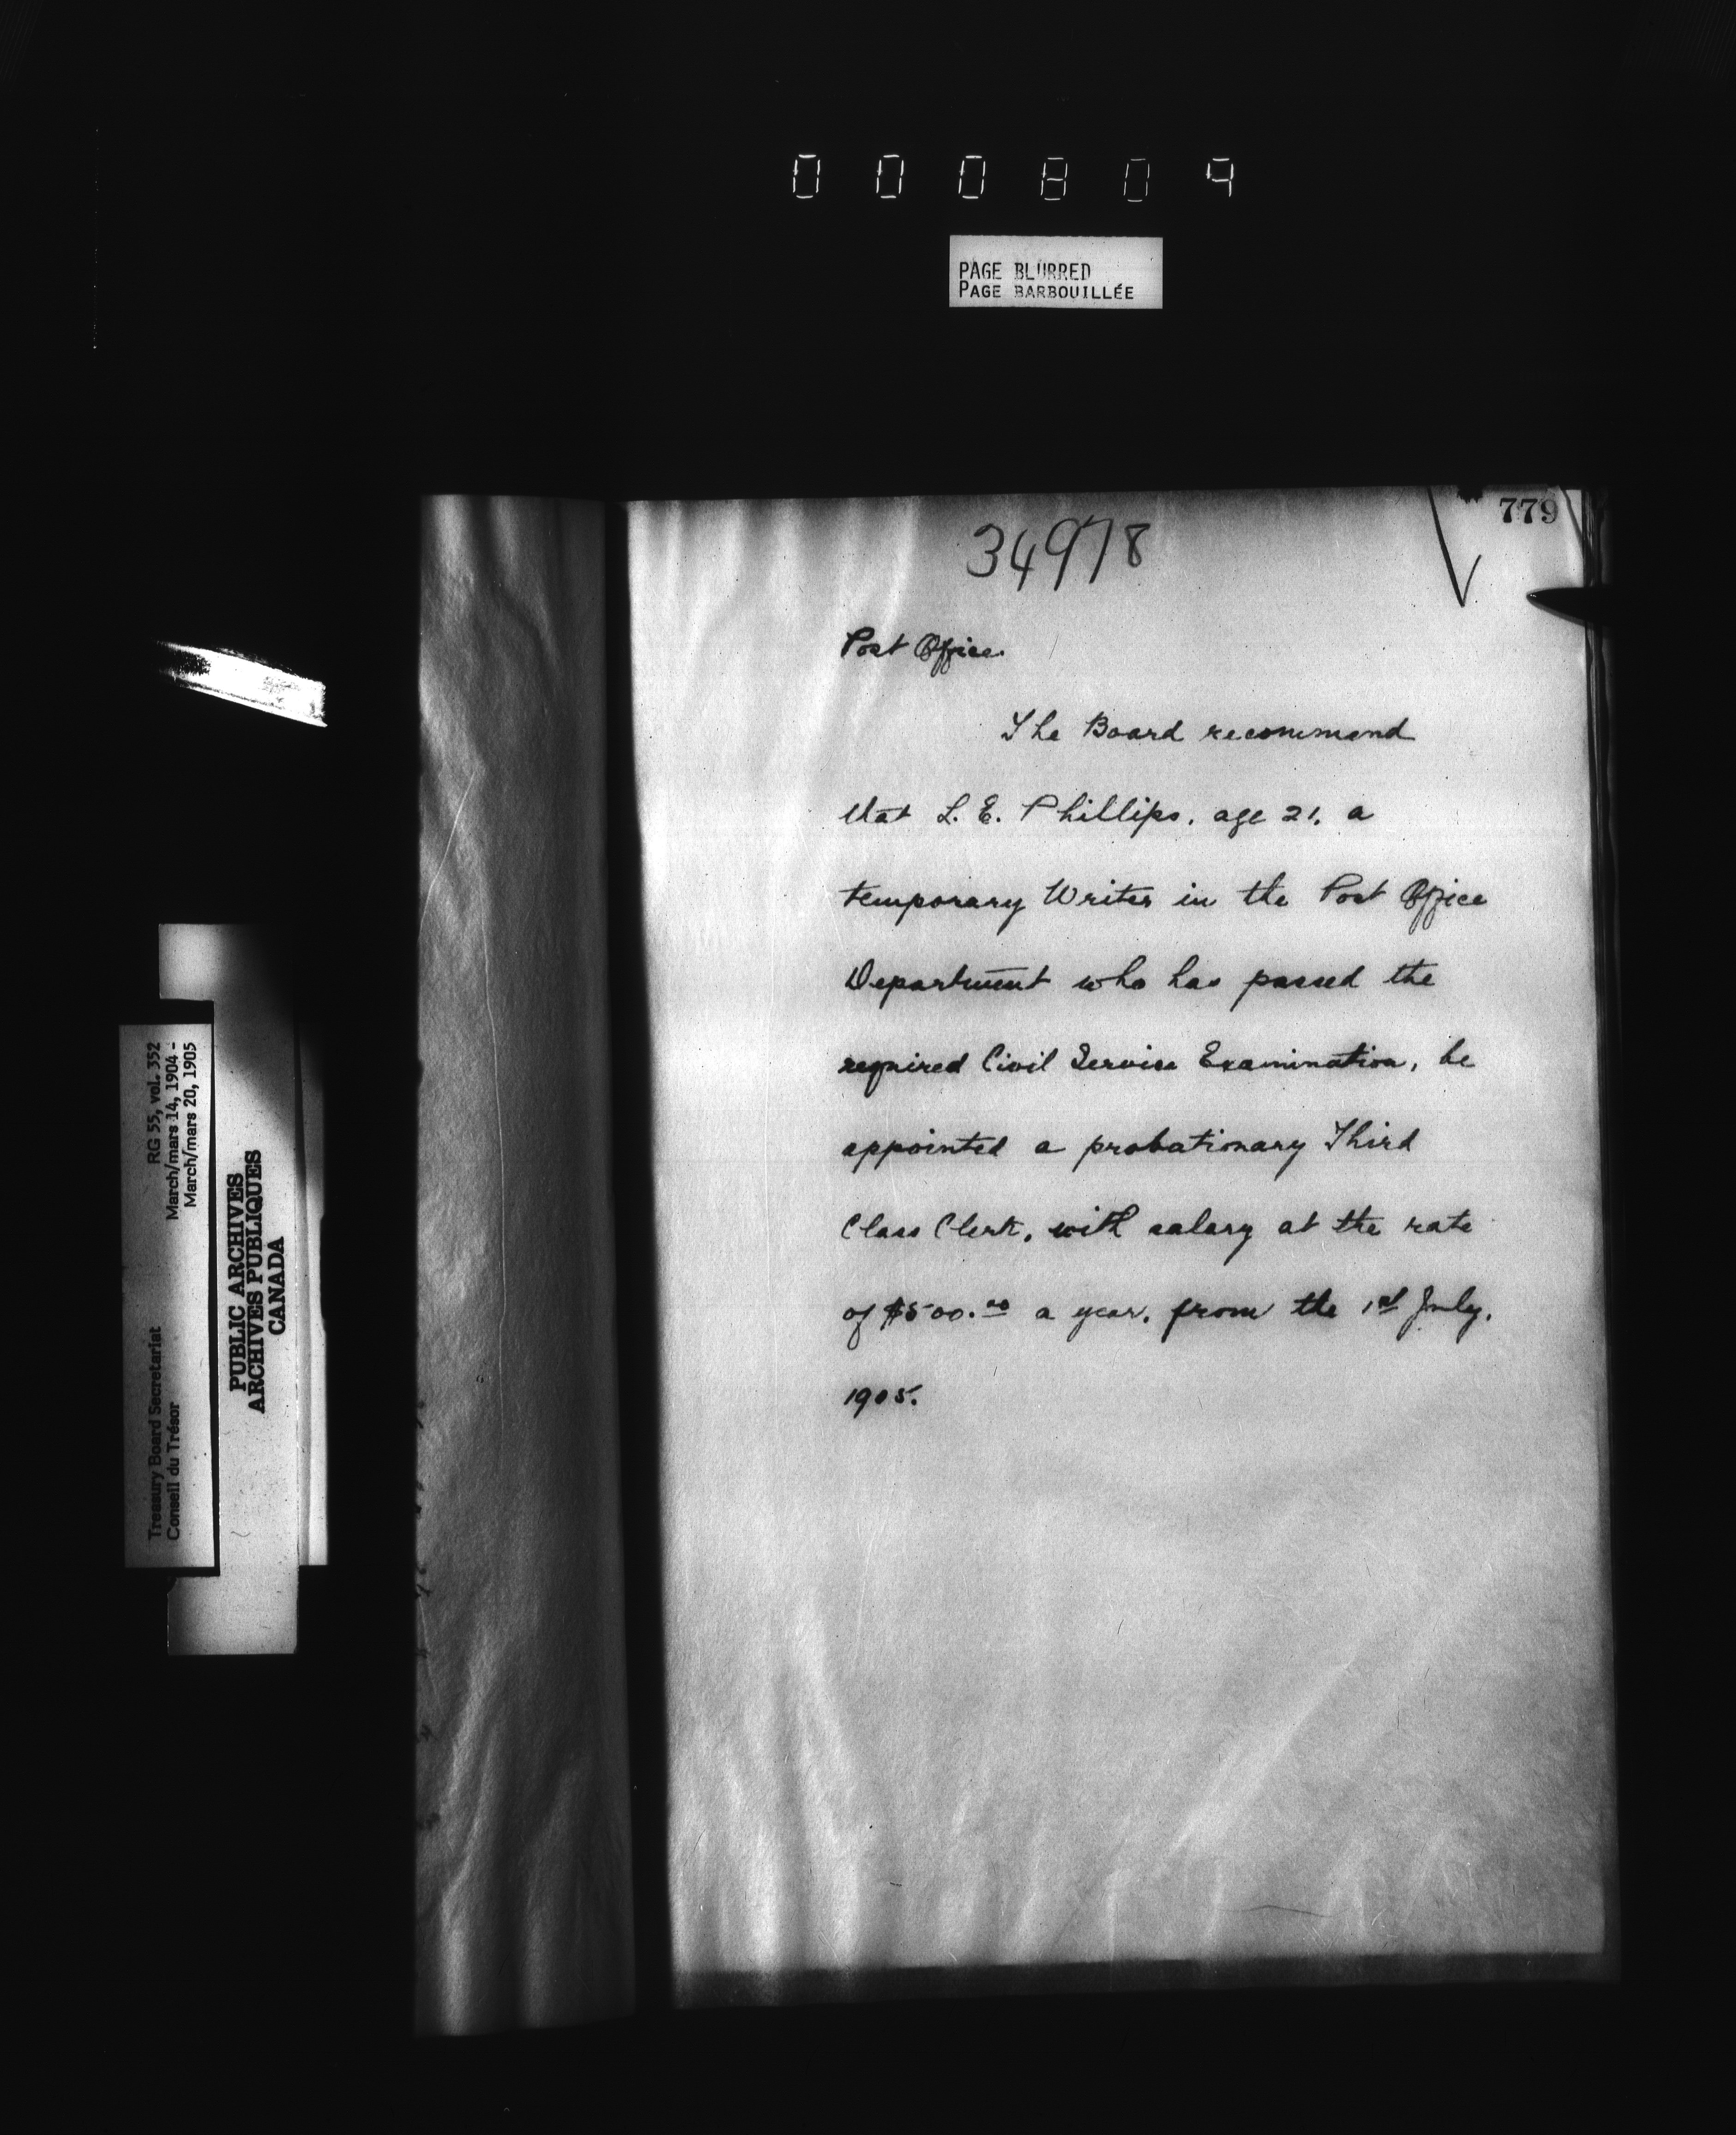 000809
PAGE BLURRED
PAGE BARBOUILLÉE
779
34978
Post Office.
The Board recommend
that L. E. Phillips, age 21, a
temporary Writer in the Post Office
Department who has passed the
required Civil Service Examination, be
appointed a probationary Third
Class Clerk, with salary at the rate
of $500.00 a year, from the 1st July,
1905.
Treasury Board Secretariat RG 55, vol. 352
Conseil du Trésor March/mars 14, 1904 -
March/mars 20, 1905
PUBLIC ARCHIVES
ARCHIVES PUBLIQUES
CANADA